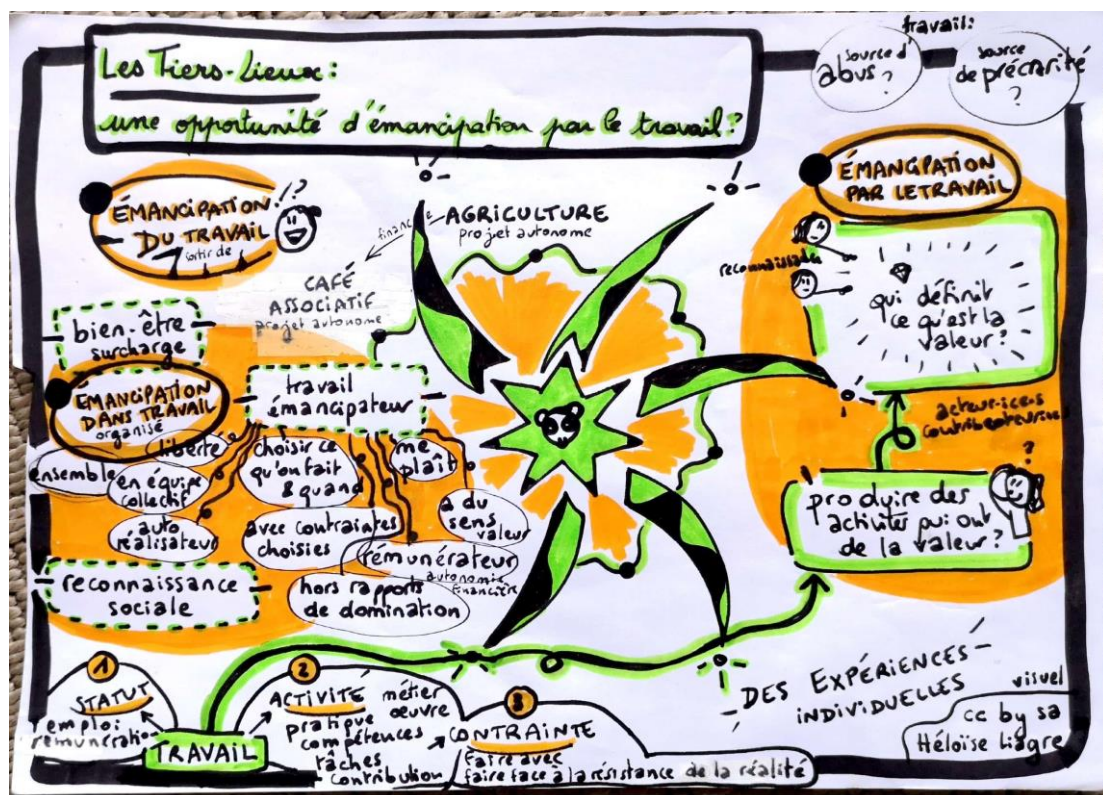 Les Tiers-Lieux :
une opportunité d'émancipation par le travail ?
travail :
source d'
abus ?
source
de précarité
?
ÉMANCIPATION !?
DU TRAVAIL
sortir de
AGRICULTURE
projet autonome
finance
CAFÉ
ASSOCIATIF
projet autonome
bien-être
surcharge
ÉMANCIPATION
DANS TRAVAIL
organisé
travail
émancipateur
liberté
ensemble
en équipe
collectif
auto
réalisateur
choisir ce
qu'on fait
& quand
avec contraintes
choisies
me
plaît
a du
sens
valeur
rémunérateur
autonomie
financière
hors rapports
de domination
reconnaissance
sociale
ÉMANCIPATION
PAR LE TRAVAIL
reconnaissance
qui définit
ce qu'est la
valeur ?
acteur·ices
contributeur·ices
?
produire des
activités qui ont
de la valeur ?
1
STATUT
emploi
rémunération
TRAVAIL
2
ACTIVITÉ métier
œuvre
pratique
compétences
tâches
contribution
3
CONTRAINTE
faire avec
faire face à la résistance de la réalité
DES EXPÉRIENCES
INDIVIDUELLES
visuel
cc by sa
Héloïse Liagre